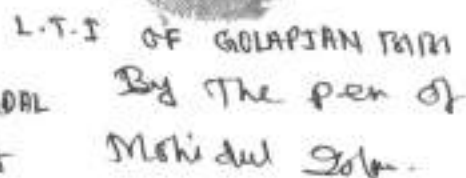 L.T.I OF GOLAPJAN
DAL By The pen of
Mohidul